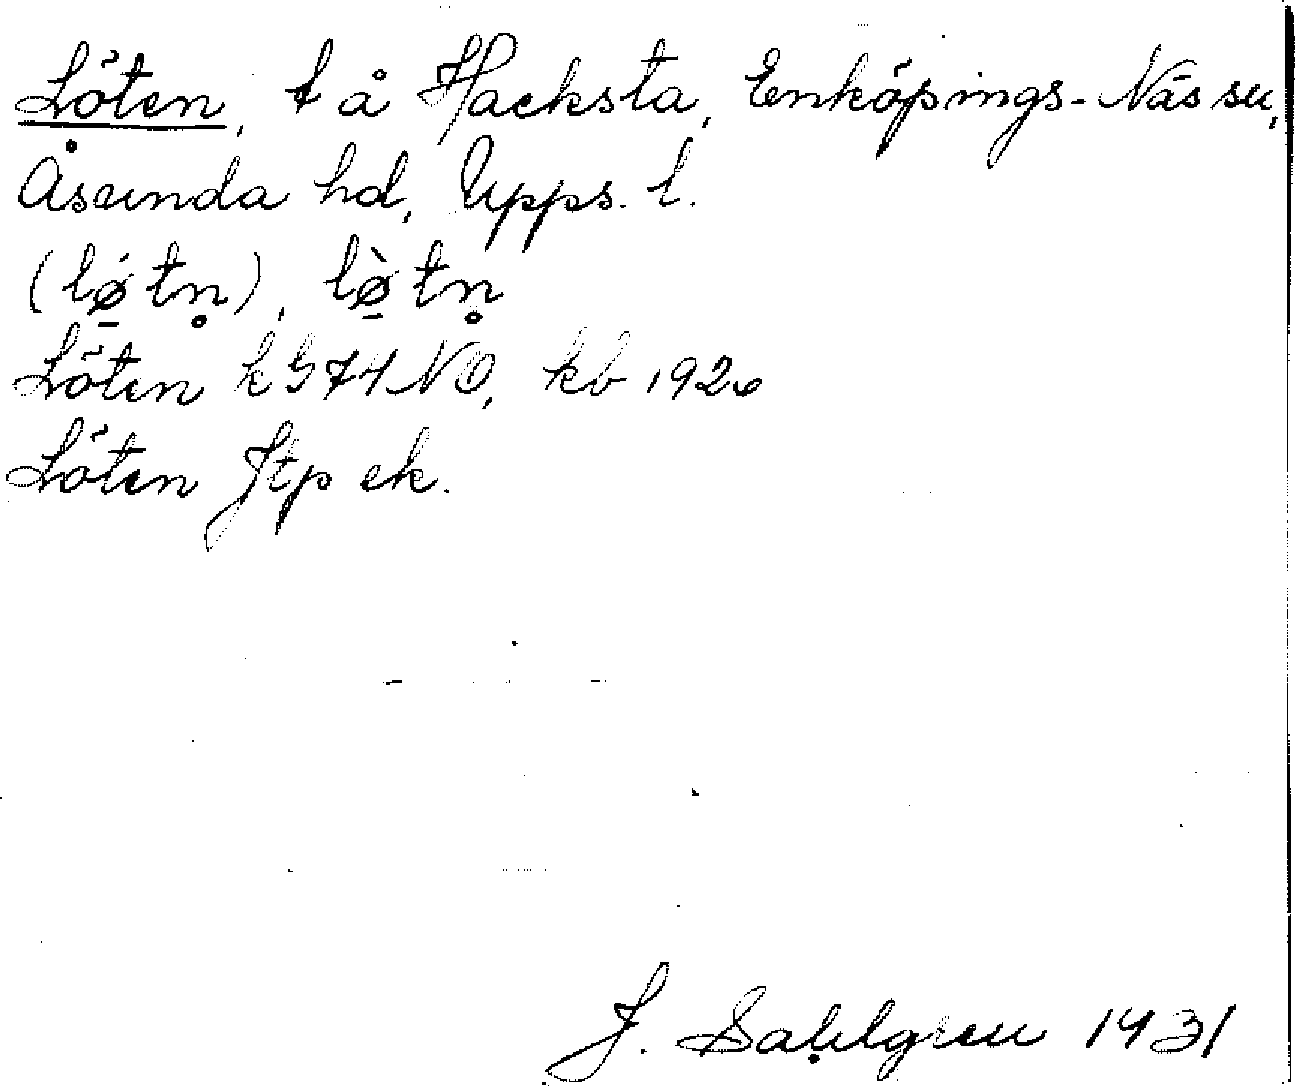 Löten, t å Hacksta, Enköpings-Näs sn,
Åsunda hd, Upps. l.
(lǿ̱tn̥), lø̱̀tn̥
Löten k G74 NO, kb 1926
Löten Jtp ek.
J. Sahlgren 1931